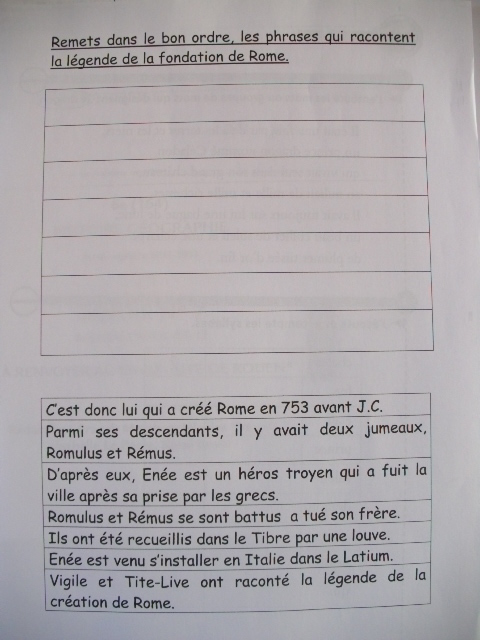 Remets dans le bon ordre, les phrases qui racontent
la légende de la fondation de Rome.
C'est donc lui qui a créé Rome en 753 avant J.C.
Parmi ses descendants, il y avait deux jumeaux,
Romulus et Rémus.
D'après eux, Enée est un héros troyen qui a fuit la
ville après sa prise par les grecs.
Romulus et Rémus se sont battus a tué son frère.
Ils ont été recueillis dans le Tibre par une louve.
Enée est venu s'installer en Italie dans le Latium.
Vigile et Tite-Live ont raconté la légende de la
création de Rome.